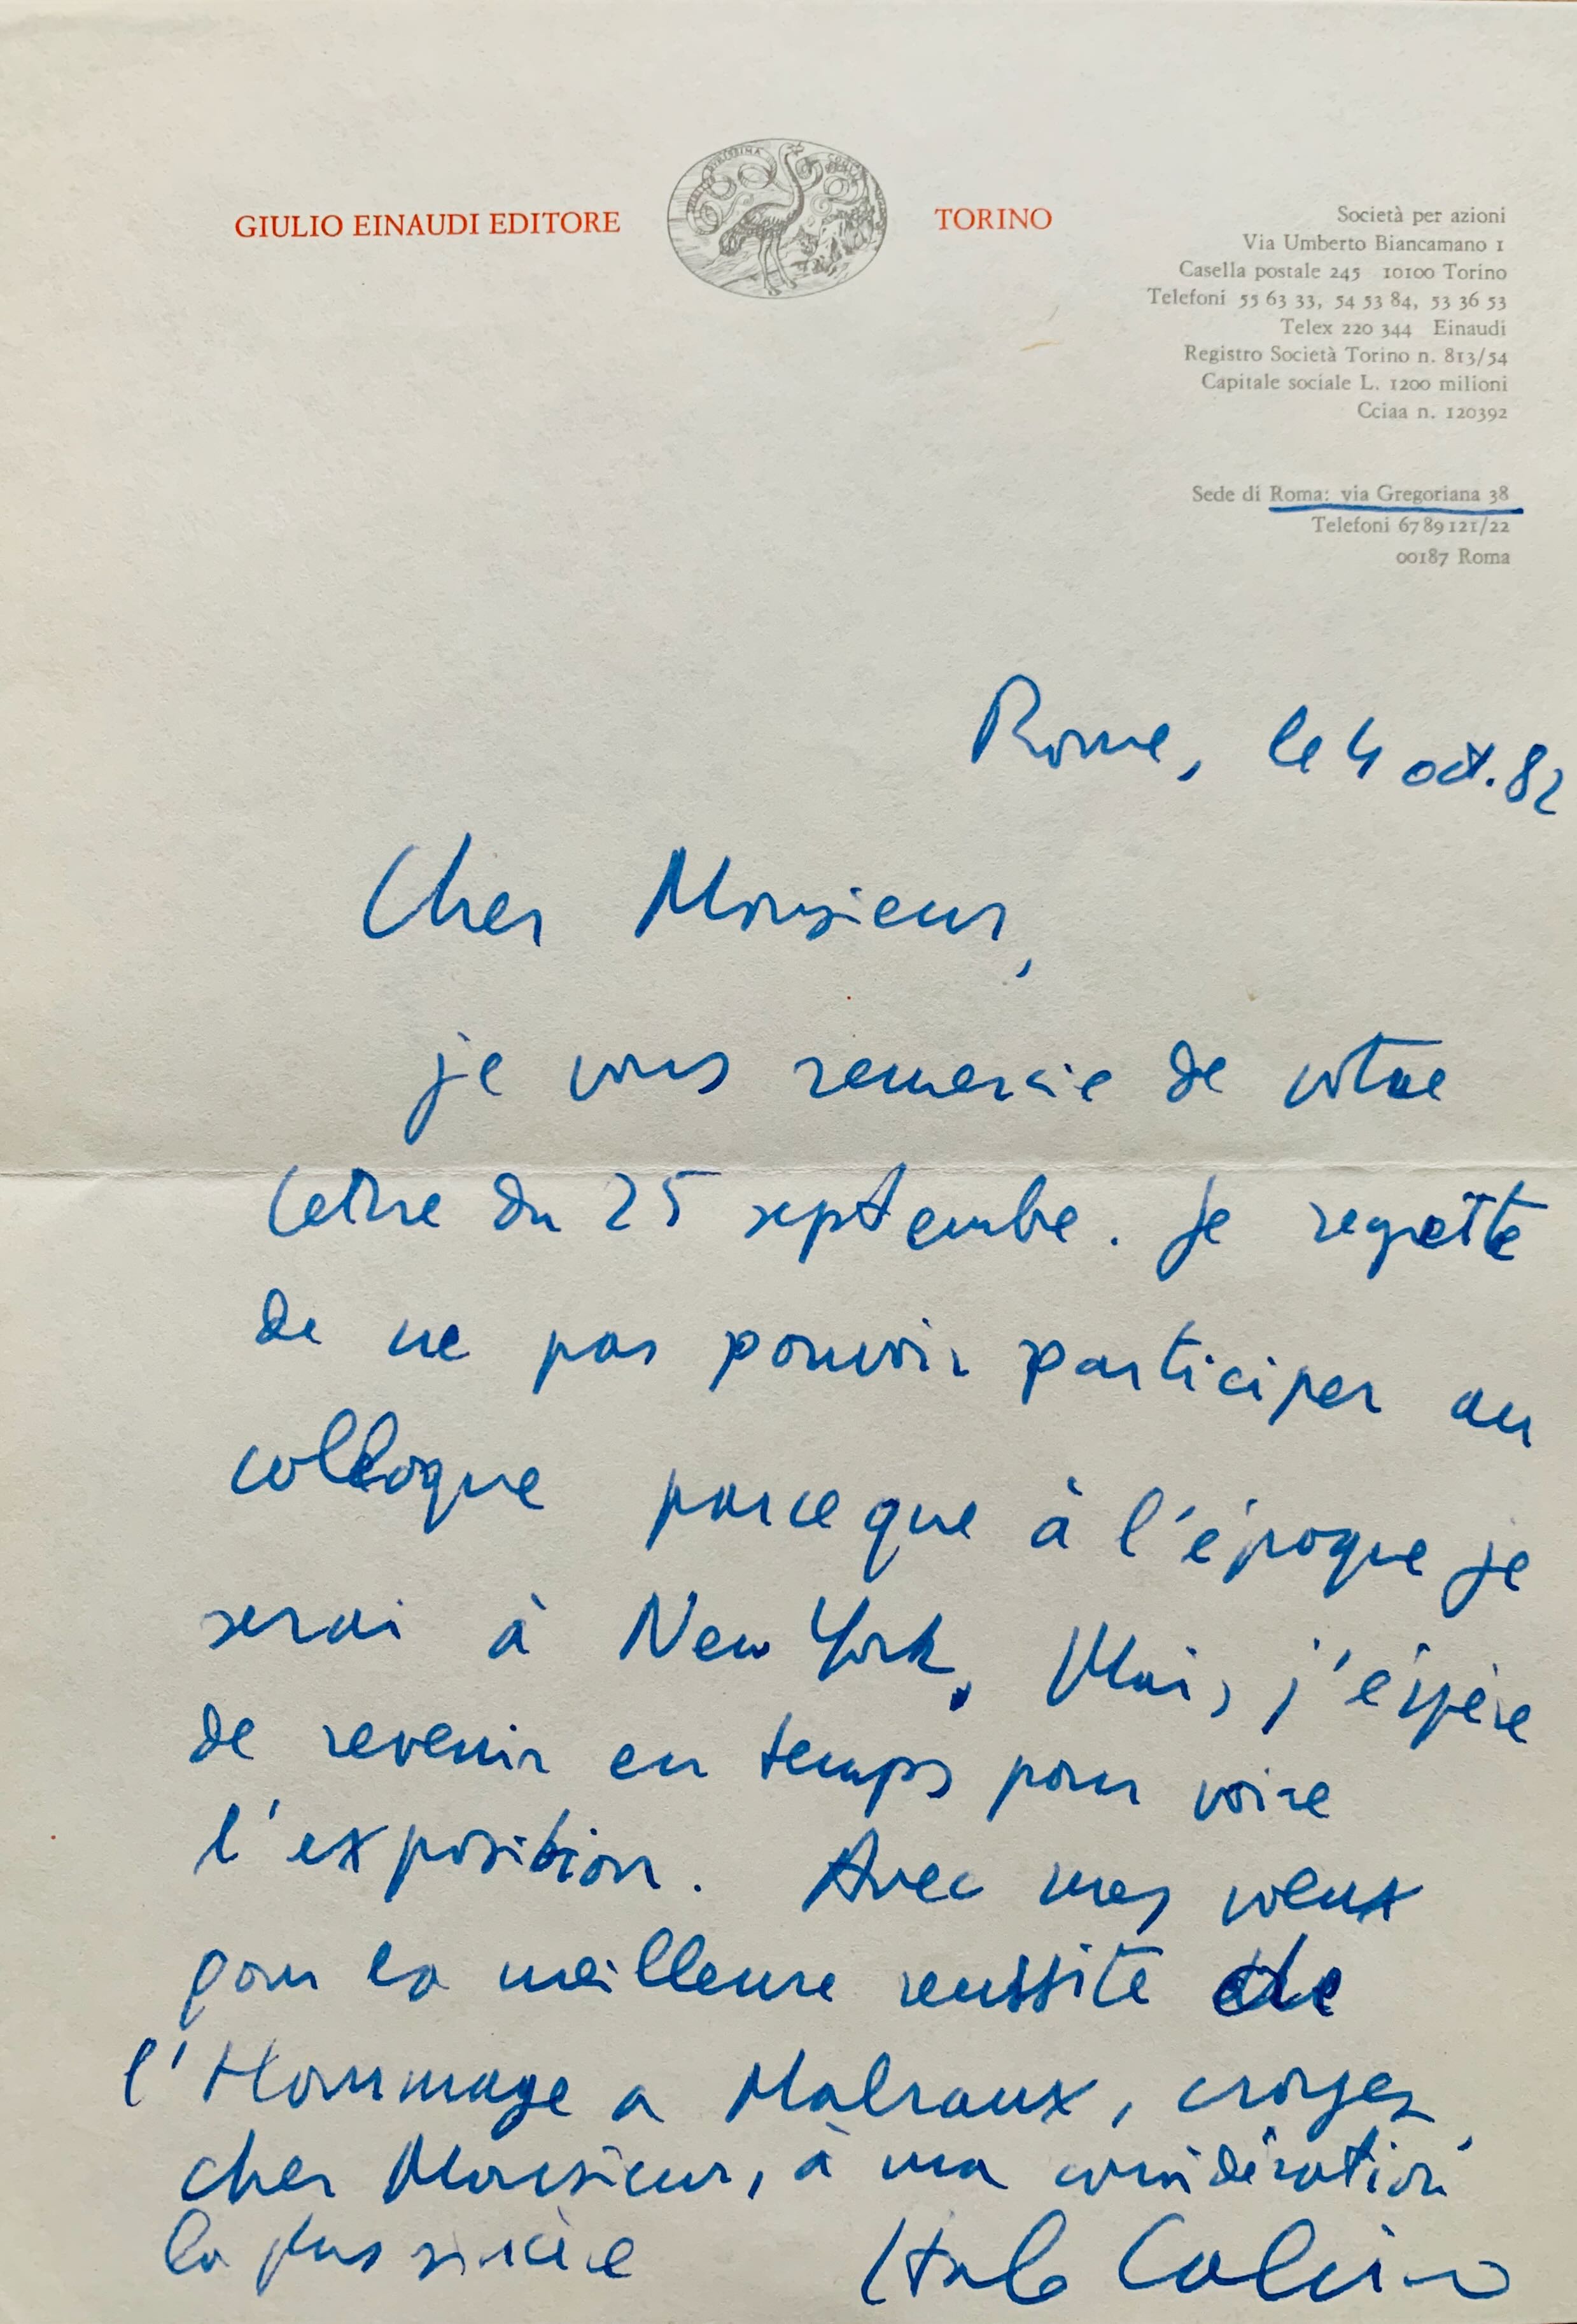 GIULIO EINAUDI EDITORE
TORINO
Società per azioni
Via Umberto Biancamano 1
Casella postale 245 10100 Torino
Telefoni 55 63 33, 54 53 84, 53 36 53
Telex 220 344 Einaudi
Registro Società Torino n. 813/54
Capitale sociale L. 1200 milioni
Cciaa n. 120392
Sede di Roma: via Gregoriana 38
Telefoni 67 89 121/22
00187 Roma
Rome, le 4 oct. 82
Cher Monsieur,
je vous remercie de votre
lettre du 25 septembre. Je regrette
de ne pas pouvoir participer au
colloque parce que à l'époque je
serai à New York. Mais j'éspère
de revenir en temps pour voire
l'exposition. Avec mes voeux
pour la meilleure reussite de
l'Hommage a Malraux, croyez,
cher Monsieur, à ma considération
la plus sincère Italo Calvino